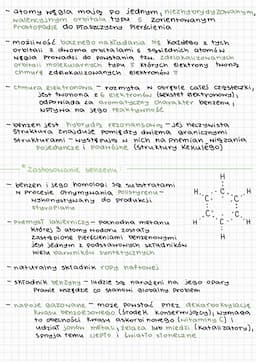 - atomy węgla mają po jednym, niezhybrydyzowanym,
walencyjnym orbitalu typu p zorientowanym
prostopadle do płaszczyzny pierścienia
- możliwość bocznego nakładania się każdego z tych
orbitali z dwoma orbitalami z sąsiednich atomów
węgla prowadzi do powstania tzw. zdelokalizowanych
orbitali molekularnych typu π których elektrony tworzą
chmurę zdelokalizowanych elektronów π
- chmura elektronowa - rozmyta w obrębie całej cząsteczki,
jest tworzona z 6 elektronów (sekstet elektronowy),
odpowiada za aromatyczny charakter benzenu i
wpływa na jego reaktywność
- benzen jest hybrydą rezonansową - jej rzeczywista
struktura znajduje pomiędzy dwiema granicznymi
strukturami - występują w nich na przemian wiązania
pojedyncze i podwójne (struktury Kekulégo)
* Zastosowanie benzenu:
- benzen i jego homologi są substratami
w procesie otrzymywania polistyrenu -
wykorzystywany do produkcji
styropianu
- przemysł lakierniczy - pochodna metanu
której 3 atomy wodoru zostały
zastąpione pierścieniami benzenowymi
jest jednym z podstawowych składników
wielu barwników syntetycznych
- naturalny składnik ropy naftowej
- składnik benzyny - ludzie są narażeni na jego opary
prawie wszędzie co stanowi globalny problem
- napoje gazowane - może powstać przez dekarboksylację
kwasu benzoesowego (środek konserwujący), wymaga
to obecności kwasu askorbinowego (witaminy C) i
udział jonów metali, żelaza lub miedzi (katalizatory),
sprzyja temu ciepło i światło słoneczne
H
H C H
C C
C C
H C H
H